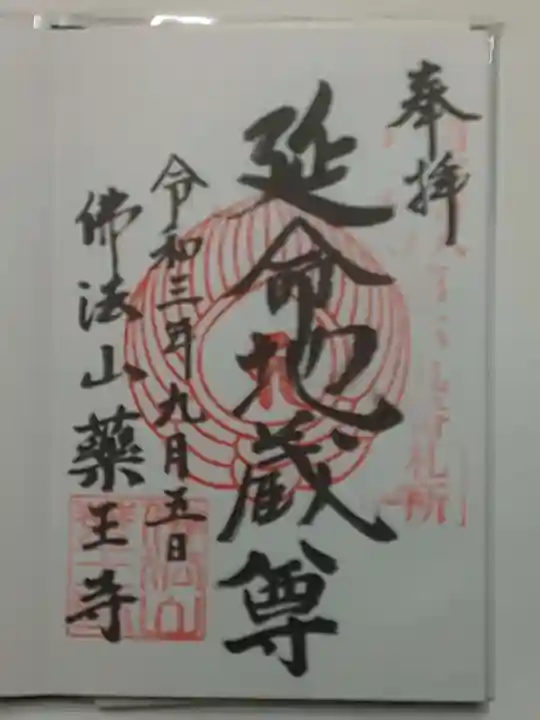 奉拝
延命地蔵尊
令和三年九月五日
佛法山薬王寺
札所